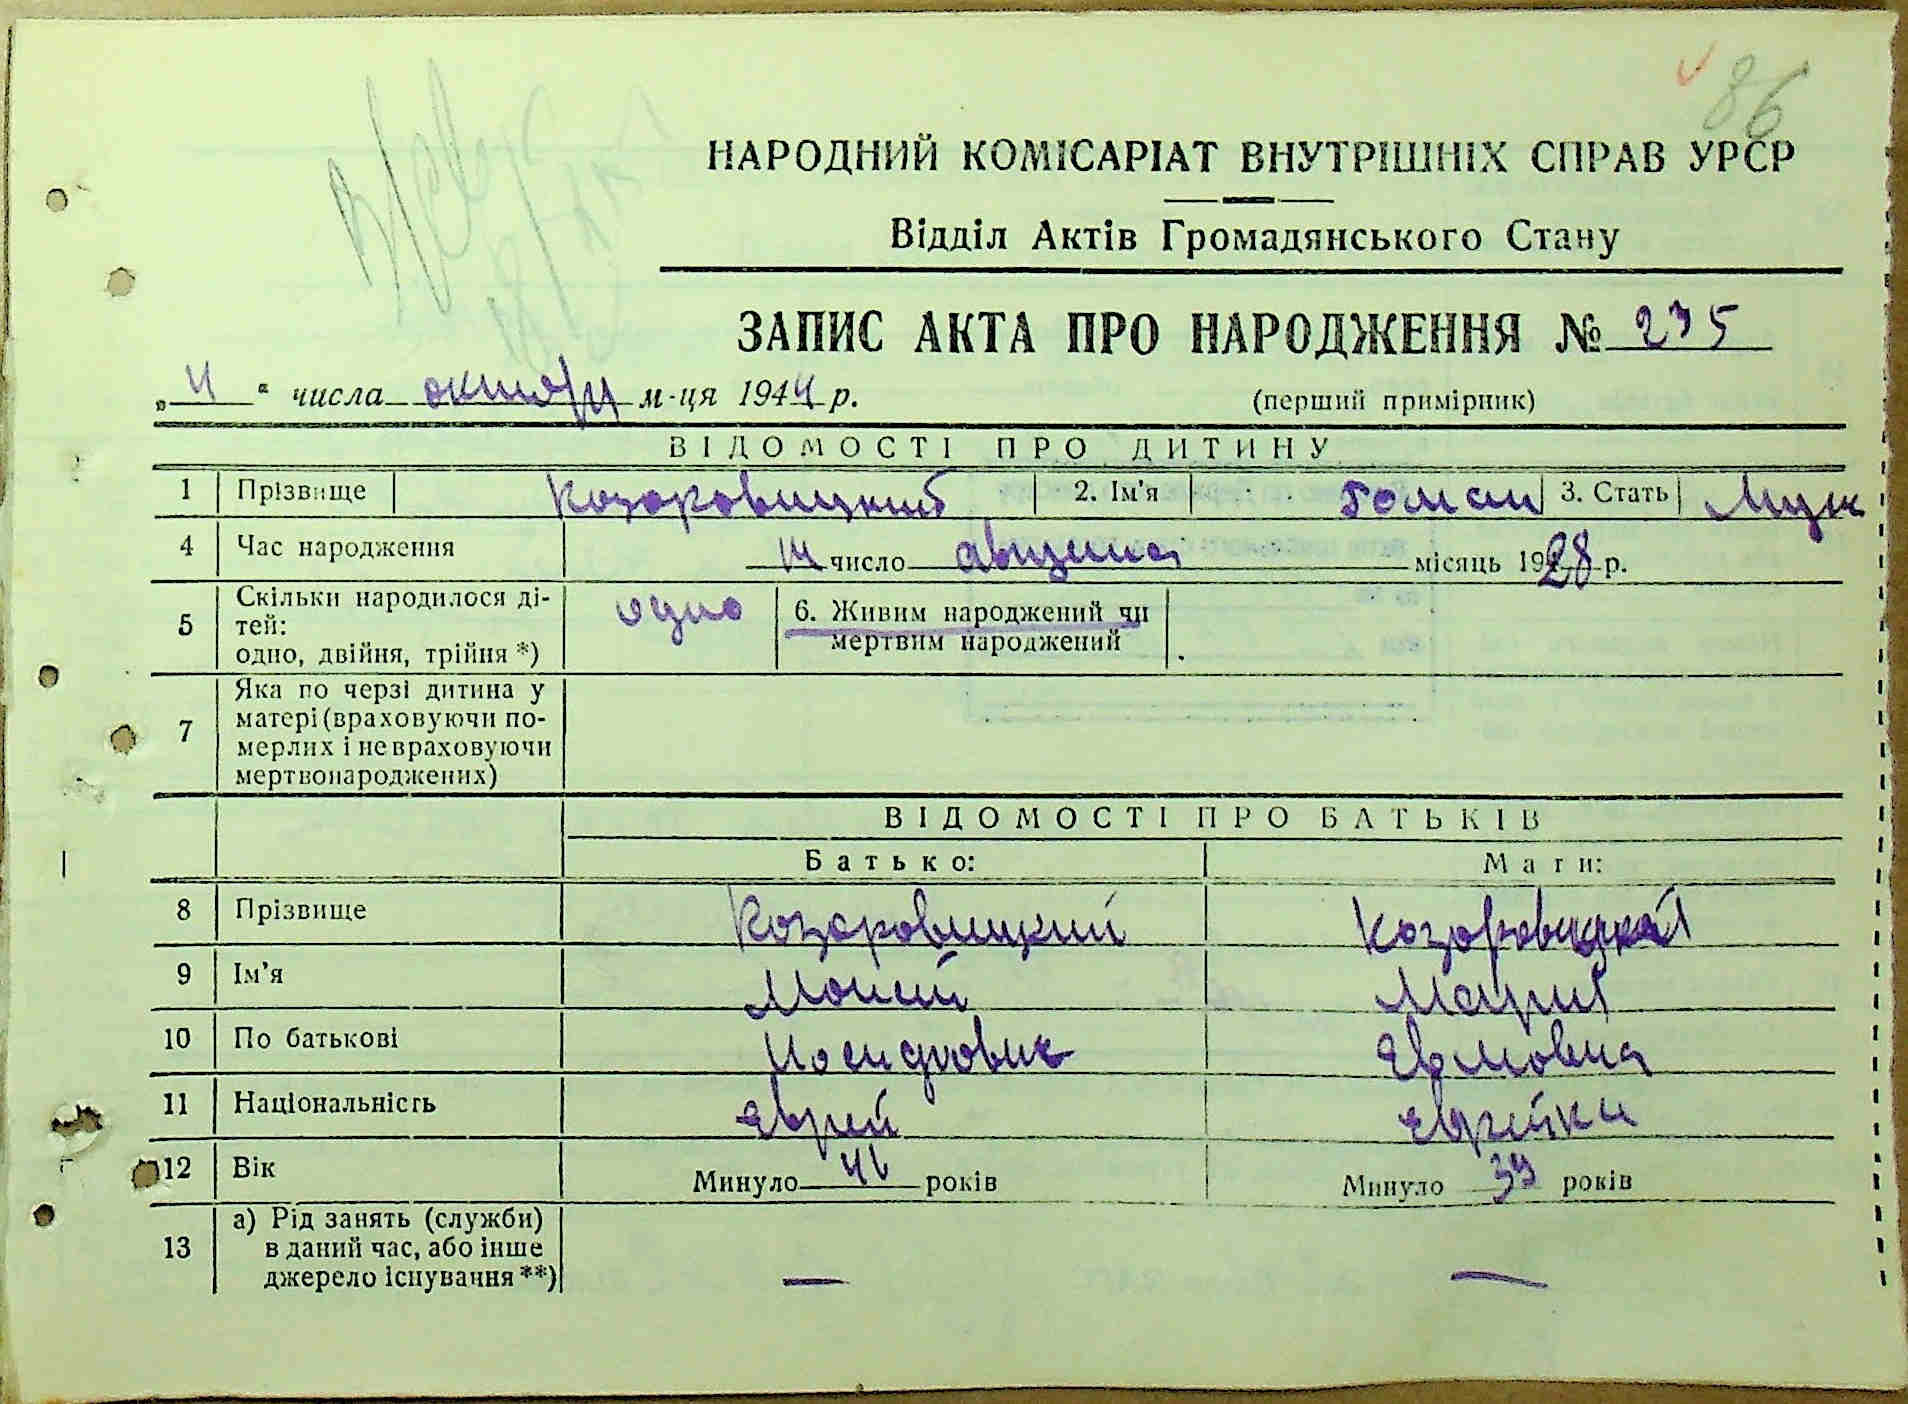 86
НАРОДНИЙ КОМІСАРІАТ ВНУТРІШНІХ СПРАВ УРСР
Відділ Актів Громадянського Стану
ЗАПИС АКТА ПРО НАРОДЖЕННЯ № 235
„4“ числа октября м-ця 1944 р.
(перший примірник)
ВІДОМОСТІ ПРО ДИТИНУ
1 Прізвище Козаровицкий 2. Ім’я 3. Стать Муж
4 Час народження 14 число августа місяць 1928 р.
5 Скільки народилося ді-
тей:
одно, двійня, трійня *)
одно
6. Живим народжений чи
мертвим народжений
7 Яка по черзі дитина у
матері (враховуючи по-
мерлих і не враховуючи
мертвонароджених)
ВІДОМОСТІ ПРО БАТЬКІВ
Батько: Мати:
8 Прізвище Козаровицкий Козаровицкая
9 Ім’я Моисей Мария
10 По батькові Иосифович
11 Національність Еврей Еврейка
12 Вік Минуло років Минуло 39 років
13 а) Рід занять (служби)
в даний час, або інше
джерело існування **)
— —